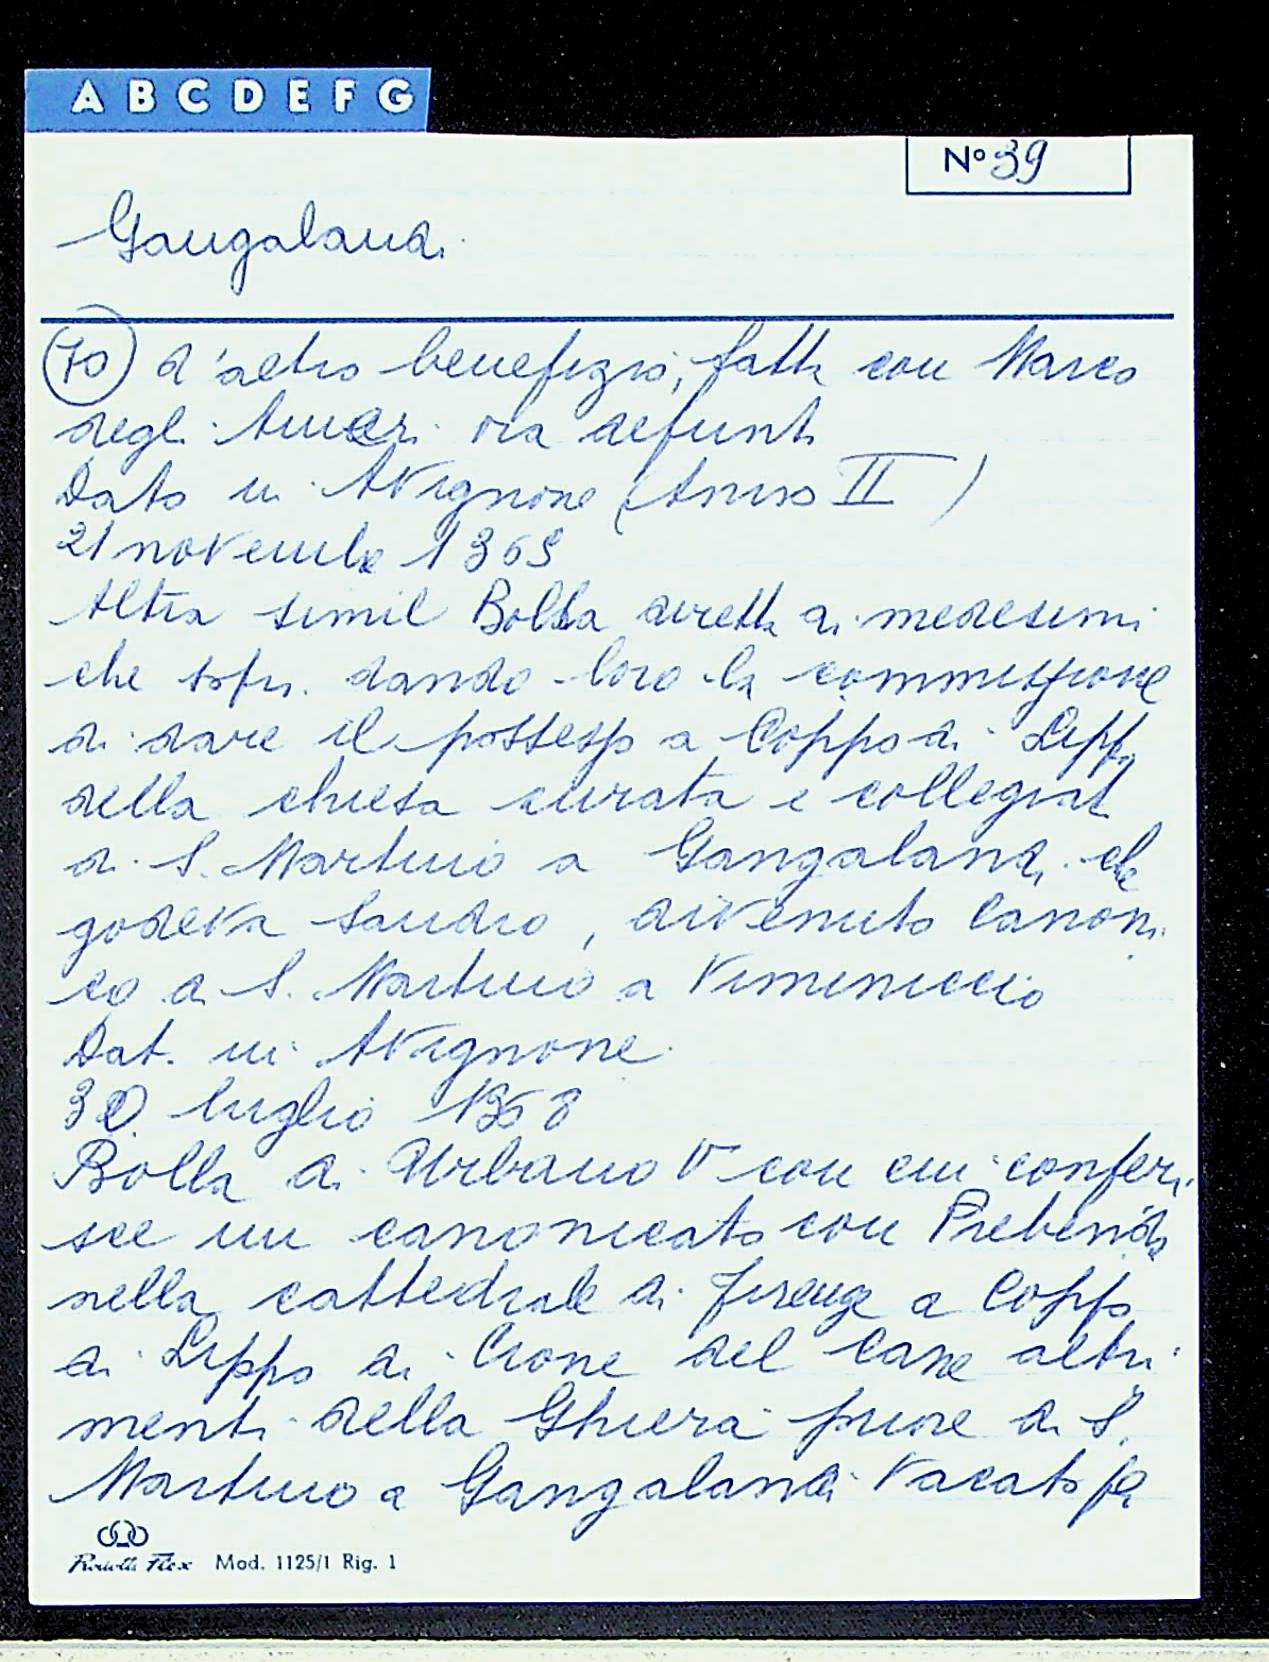 A B C D E F G
N° 39
Gangalandi
70 d'altro benefizio, fatta con Marco
degli Ameri ora defunto
Dato in Avignone (Anno II)
21 novembre 1363
Altra simil Bolla diretta ai medesimi
che sopra dando loro la commissione
di dare il possesso a Coppo di Lippo
della chiesa curata e collegiata
di S. Martino a Gangalandi che
godeva Sandro, divenuto Canoni
co di S. Martino a Viminiccio
Dat. in Avignone
30 luglio 1368
Bolla di Urbano V con cui conferi
sce un canonicato con Prebenda
nella cattedrale di Firenze a Coppo
di Lippo di Cione del Cane altri
menti della Ghiera priore di S.
Martino a Gangalandi vacato per
Mod. 1125/1 Rig. 1